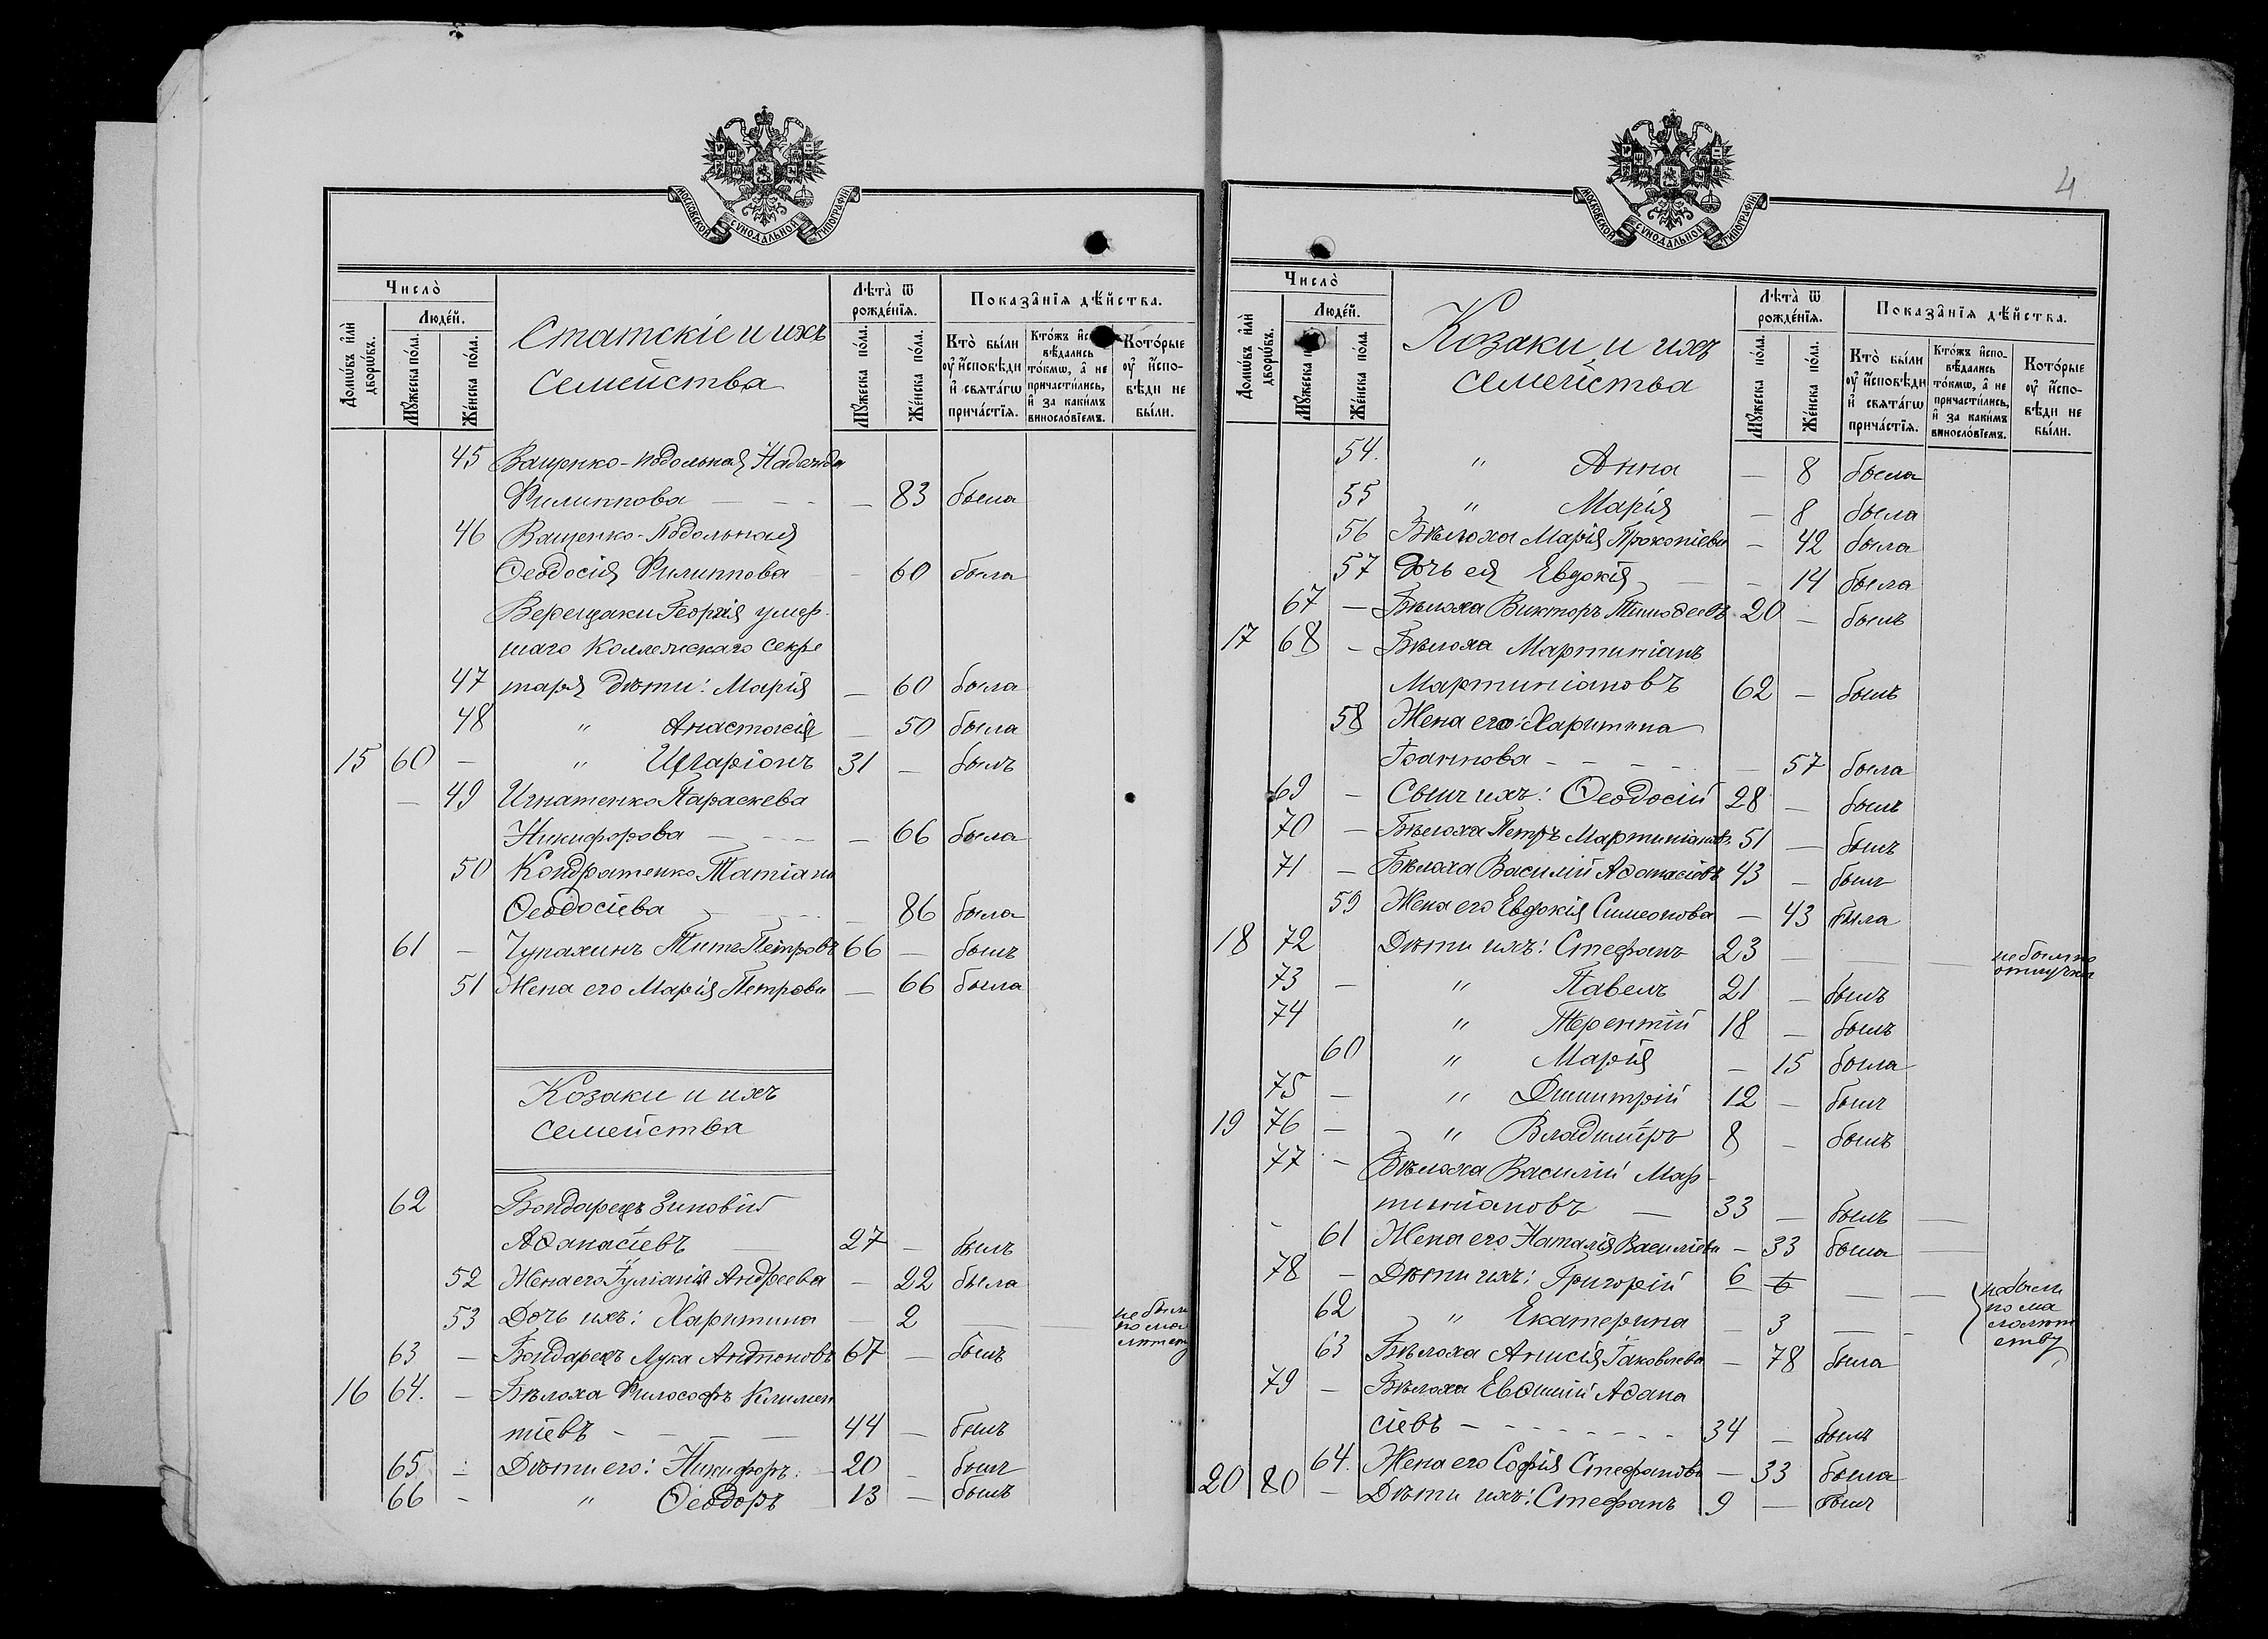 МОСКОВСКОЙ СУНОДАЛЬНОЙ ТИПОГРАФІИ
Число̀
Домѡ́въ и҆лѝ дворѡ́въ.
Люде́й.
Мꙋ́жеска по́ла.
Же́нска по́ла.
Статскіе и ихъ
семейства
Лѣта̀ ѿ рожде́нїѧ.
Мꙋ́жеска по́ла.
Же́нска по́ла.
Показа̑нїѧ дѣ́йства.
Кто̀ бы́ли оу҆ и҆сповѣди и҆ свѧта́гѡ прича́стїѧ.
Кто́жъ вѣ́дались то́кмѡ, а҆ не причасти́лись, и҆ за каки́мъ винословіемъ.
Кото́рые оу҆ и҆спо- вѣди не бы́ли.
45 Ващенко-Подольная Надежда
Филиппова — — — 83 была
46 Ващенко-Подольная
Ѳеодосія Филиппова — 60 была
Верещаки Георгія умер-
шаго Коллежскаго секре
47 таря дѣти: Марія — 60 была
48 " Анастасія — 50 была
15 60 — " Иларіонъ 31 — былъ
— 49 Игнатенко Параскева
Никифорова — — — 66 была
50 Кондратенко Татіана
Ѳеодосіева — 86 была
61 — Чупахинъ Титъ Петровъ 66 — былъ
51 Жена его Марія Петрова — 66 была
Козаки и ихъ
семейства
62 Бондарецъ Зиновій
Аѳанасіевъ — 27 — былъ
52 Жена его Іуліанія Андреева — 22 была
53 Дочь ихъ: Харитина — 2 — — не была
по мало
лѣтству
63 — Бондарецъ Лука Антоновъ 67 — былъ
16 64. — Бѣлоха Философъ Климен
тіевъ - — — 44 — былъ
65 — Дѣти его: Никифоръ — 20 — былъ
66 - " Ѳеодоръ 13 — былъ
4
МОСКОВСКОЙ СУНОДАЛЬНОЙ ТИПОГРАФІИ
Число̀
Домѡ́въ и҆лѝ дворѡ́въ.
Люде́й.
Мꙋ́жеска
Же́нска по́ла.
Козаки и ихъ
семейства
Лѣта̀ ѿ рожде́нїѧ.
Мꙋ́жеска по́ла.
Же́нска по́ла.
Показа̑нїѧ дѣ́йства.
Кто̀ бы́ли оу҆ и҆сповѣди и҆ свѧта́гѡ прича́стїѧ.
Кто́жъ и҆спо- вѣ́дались то́кмѡ, а҆ не причасти́лись, и҆ за каки́мъ винословіемъ.
Кото́рые оу҆ и҆спо- вѣди не бы́ли.
54. " Анна — 8 была
55 " Марія — 8 была
56 Бѣлоха Марія Прокопіева — 42 была
57 Дочь ея Евдокія — — 14 была
67 — Бѣлоха Викторъ Тимоѳеевъ 20 — былъ
17 68 — Бѣлоха Мартиніанъ
Мартиніановъ 62 — былъ
58 Жена его: Харитина
Іоаннова - — — — 57 была
69 — Сынъ ихъ: Ѳеодосій 28 — былъ
70 — Бѣлоха Петръ Мартиніановъ 51 — былъ
71 — Бѣлоха Василій Аѳанасіевъ 43 — былъ
59 Жена его Евдокія Симеонова — 43 была
18 72 Дѣти ихъ: Стефанъ 23 — — — не былъ по
отлучкѣ
73 — " Павелъ 21 — былъ
74 " Терентій 18 — былъ
60 " Марія — 15 была
75 — " Димитрій 12 — былъ
19 76 — " Владиміръ 8 — былъ
77 — Бѣлоха Василій Мар-
тиніановъ — 33 — былъ —
61 Жена его Наталія Василіева — 33 была —
78 — Дѣти ихъ: Григорій 6 6 — — не были
62 " Екатерина — 3 — - по ма
лолѣт
ству
63 Бѣлоха Анисія Іаковлева — 78 была
79 — Бѣлоха Евѳимій Аѳана
сіевъ — - - - - - - 34 — былъ
64. Жена его Софія Стефанова — 33 была
20 80 — Дѣти ихъ: Стефанъ 9 — былъ